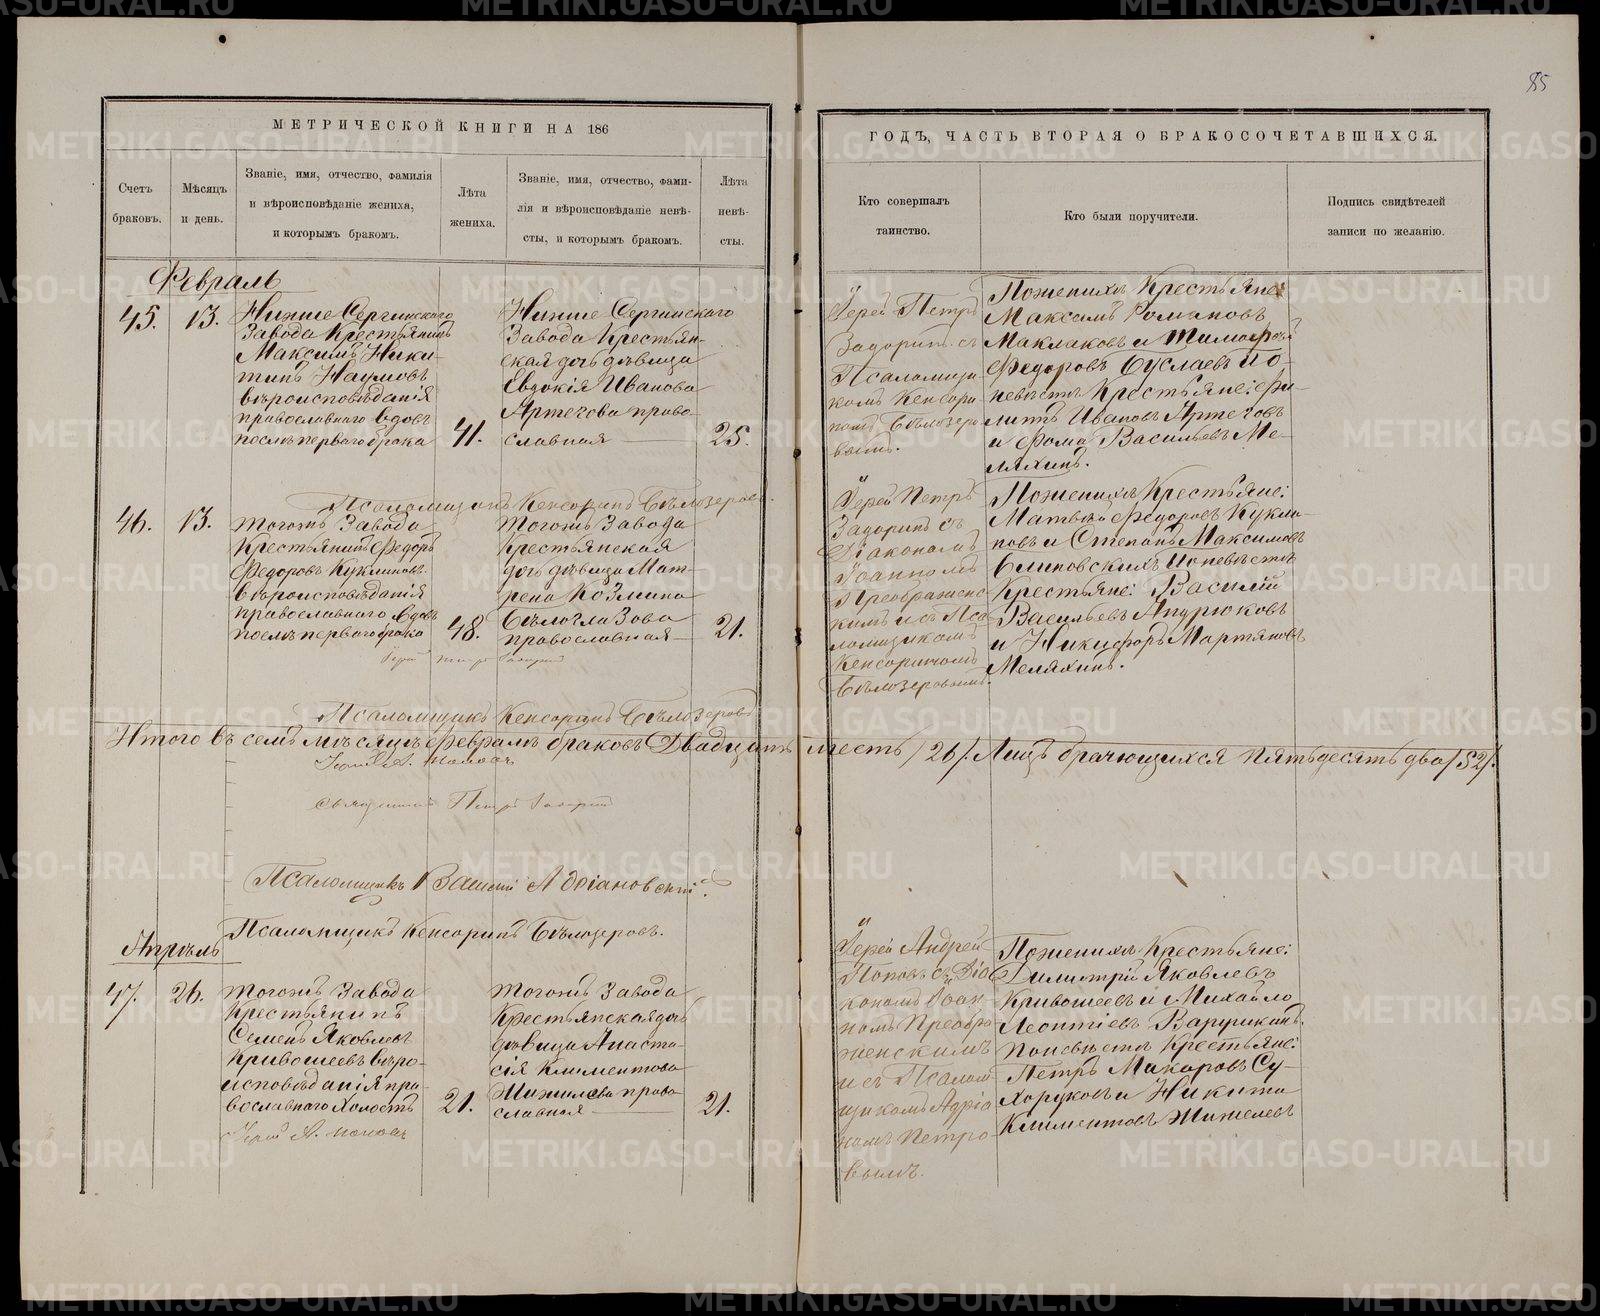 85
МЕТРИЧЕСКОЙ КНИГИ НА 186
Счетъ браковъ.
Мѣсяцъ и день.
Званіе, имя, отчество, фамилія
и вѣроисповѣданіе жениха,
и которымъ бракомъ.
Лѣта жениха.
Званіе, имя, отчество, фами-
лія и вѣроисповѣданіе невѣ-
сты, и которымъ бракомъ.
Лѣта невѣ-
сты.
Февраль
45.
13.
Нижне Сергинскаго
Завода Крестьянинъ
Максимъ Ники-
тинъ Наумовъ
вѣроисповѣданія
православнаго вдовъ
послѣ перваго брака
41.
Нижне Сергинскаго
Завода Крестьян-
ская дочь дѣвица
Евдокія Иванова
Артегова право-
славная
25.
Псаломщикъ Кенсоринъ Бѣлозеровъ.
46.
13.
Тогожъ Завода
Крестьянинъ Федоръ
Федоровъ Куклиновъ
вѣроисповѣданія
православнаго вдовъ
послѣ перваго брака
48.
Тогожъ Завода
Крестьянская
дочь дѣвица Мат-
рена Козмина
Бѣлоглазова
православная
21.
Псаломщикъ Кенсоринъ Бѣлозеровъ
Итого въ семъ мѣсяцѣ Февралѣ браковъ Двадцать шесть /26/. Лицъ брачующихся пятьдесятъ два /52/.
Іерей А. Поповъ
священникъ Петръ Задоринъ
Псаломщикъ Василій Адріановскій.
Псаломщикъ Кенсоринъ Бѣлозеровъ.
Апрѣль
47.
26.
Тогожъ Завода
Крестьянинъ
Семенъ Яковлевъ
Кривошеевъ вѣро-
исповѣданія пра-
вославнаго холостъ
21.
Тогожъ Завода
Крестьянская дочь
дѣвица Анаста-
сія Климентова
Шижилева право-
славная
21.
Іерей А. Поповъ
ГОДЪ, ЧАСТЬ ВТОРАЯ О БРАКОСОЧЕТАВШИХСЯ.
Кто совершалъ
таинство.
Кто были поручители.
Подпись свидѣтелей
записи по желанію.
Іерей Петръ
Задоринъ съ
Псаломщи-
комъ Кенсори-
номъ Бѣлозеро-
вымъ.
По женихѣ Крестьяне:
Максимъ Романовъ
Маклаковъ и Тимофей
Федоровъ Буслаевъ и по
невѣстѣ Крестьяне: Фи-
липпъ Ивановъ Артеговъ
и Фома Васильевъ Ме-
ляхинъ.
Іерей Петръ
Задоринъ съ
Діакономъ
Іоанномъ
Преображенс-
кимъ и съ Пса-
ломщикомъ
Кенсориномъ
Бѣлозеровымъ.
По женихѣ Крестьяне:
Матвѣй Федоровъ Кукли-
новъ и Степанъ Максимовъ
Блиновскихъ и по невѣстѣ
Крестьяне: Василій
Васильевъ Андрюковъ
и Никифоръ Мартяновъ
Меляхинъ.
Іерей Андрей
Поповъ съ Діа-
кономъ Іоан-
номъ Преобра-
женскимъ
и съ Псалом-
щикомъ Адріа-
номъ Петро-
вымъ.
По женихѣ Крестьяне:
Димитрій Яковлевъ
Кривошеевъ и Михайло
Леонтіевъ
По невѣстѣ Крестьяне:
Петръ Макаровъ Су-
хоруковъ и Никита
Климентовъ Шижелевъ
METRIKI.GASO-URAL.RU